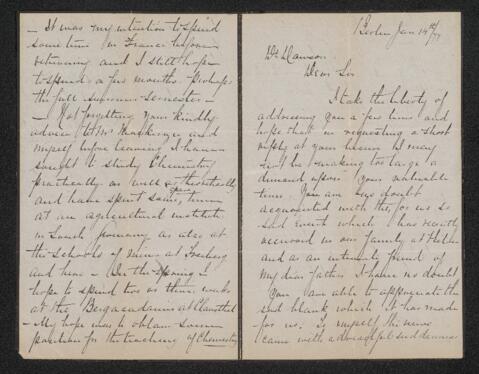 Berlin Jan 14th/77
Dr Dawson.
Dear Sir
I take the liberty of
addressing you a few lines and
hope that in requesting a short
reply at your leisure I may
not be making too large a
demand upon your valuable
time. You are no doubt
acquainted with the, for us so
sad event which has recently
occurred in our family at
and as an intimate friend of
my dear father I have no doubt
you are able to appreciate the
sad blank which it has made
for us. To myself the news
came with a dreadful suddenness
- It was my intention to spend
some time in France before
returning and I still hope
to spend a few months. Perhaps
the full summer-semester -
- Not forgetting your kindly
advice to Mr and
myself before leaving I have
sought to study Chemistry
practically as well as theoretically
and have spent some time
at an agricultural institute
in South Germany as also at
the Schools of Mines at Freiberg
and here - In the spring I
hope to spend two or three weeks
at the Bergacademie at Clausthal
- My hope was to obtain some
position for the teaching of Chemistry